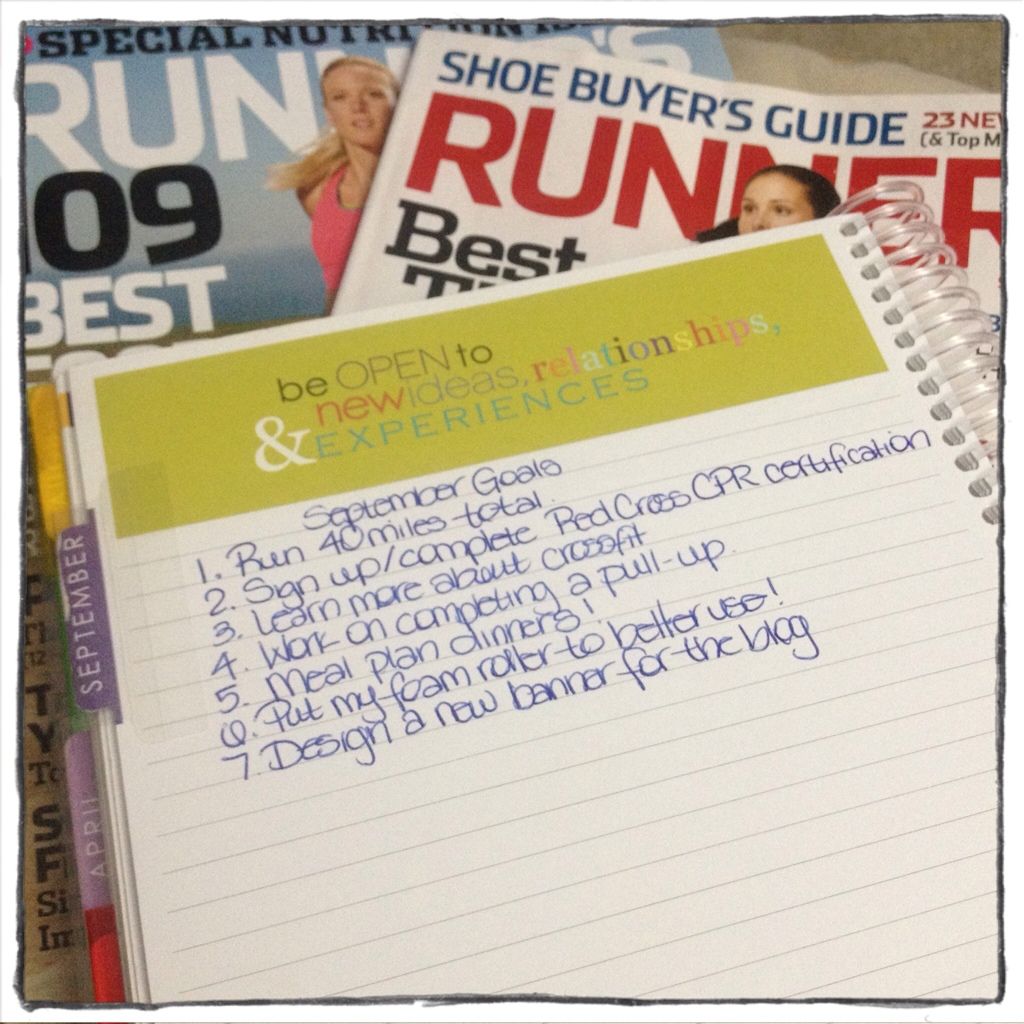 SPECIAL NUTRITION
RUNNER'S
109
BEST
SHOE BUYER'S GUIDE
23 NE
(& Top M
RUNNER
Best
be OPEN to
new ideas, relationships,
& EXPERIENCES
September Goals
1. Run 40 miles total.
2. Sign up/complete Red Cross CPR certification
3. Learn more about crossfit
4. Work on completing a pull-up.
5. Meal plan dinners!
6. Put my foam roller to better use!
7. Design a new banner for the blog
SEPTEMBER
APRIL